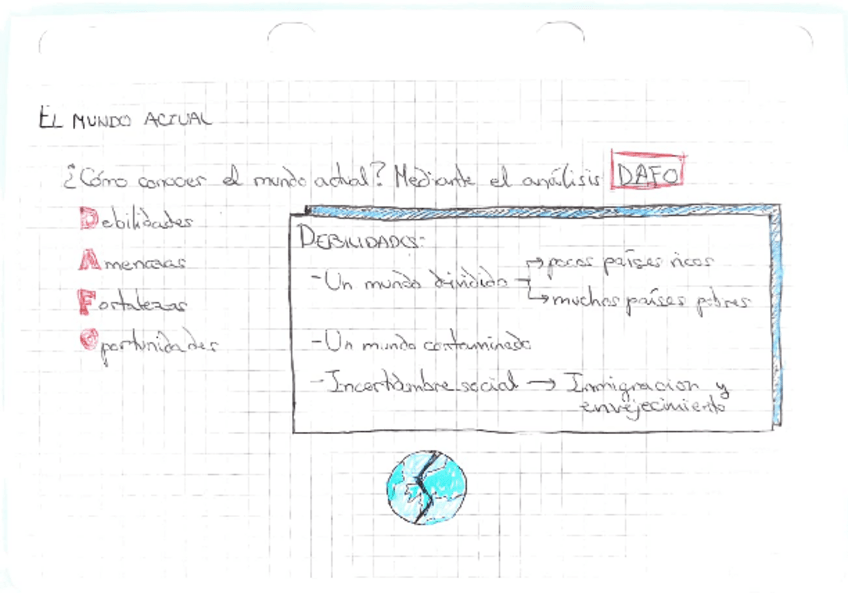 EL MUNDO ACTUAL
¿Cómo conocer el mundo actual? Mediante el análisis DAFO
Debilidades
Amenazas
Fortalezas
Oportunidades
DEBILIDADES:
-Un mundo dividido
→pocos países ricos
→muchos países pobres
-Un mundo contaminado
-Incertidumbre social → Inmigracion y
envejecimiento